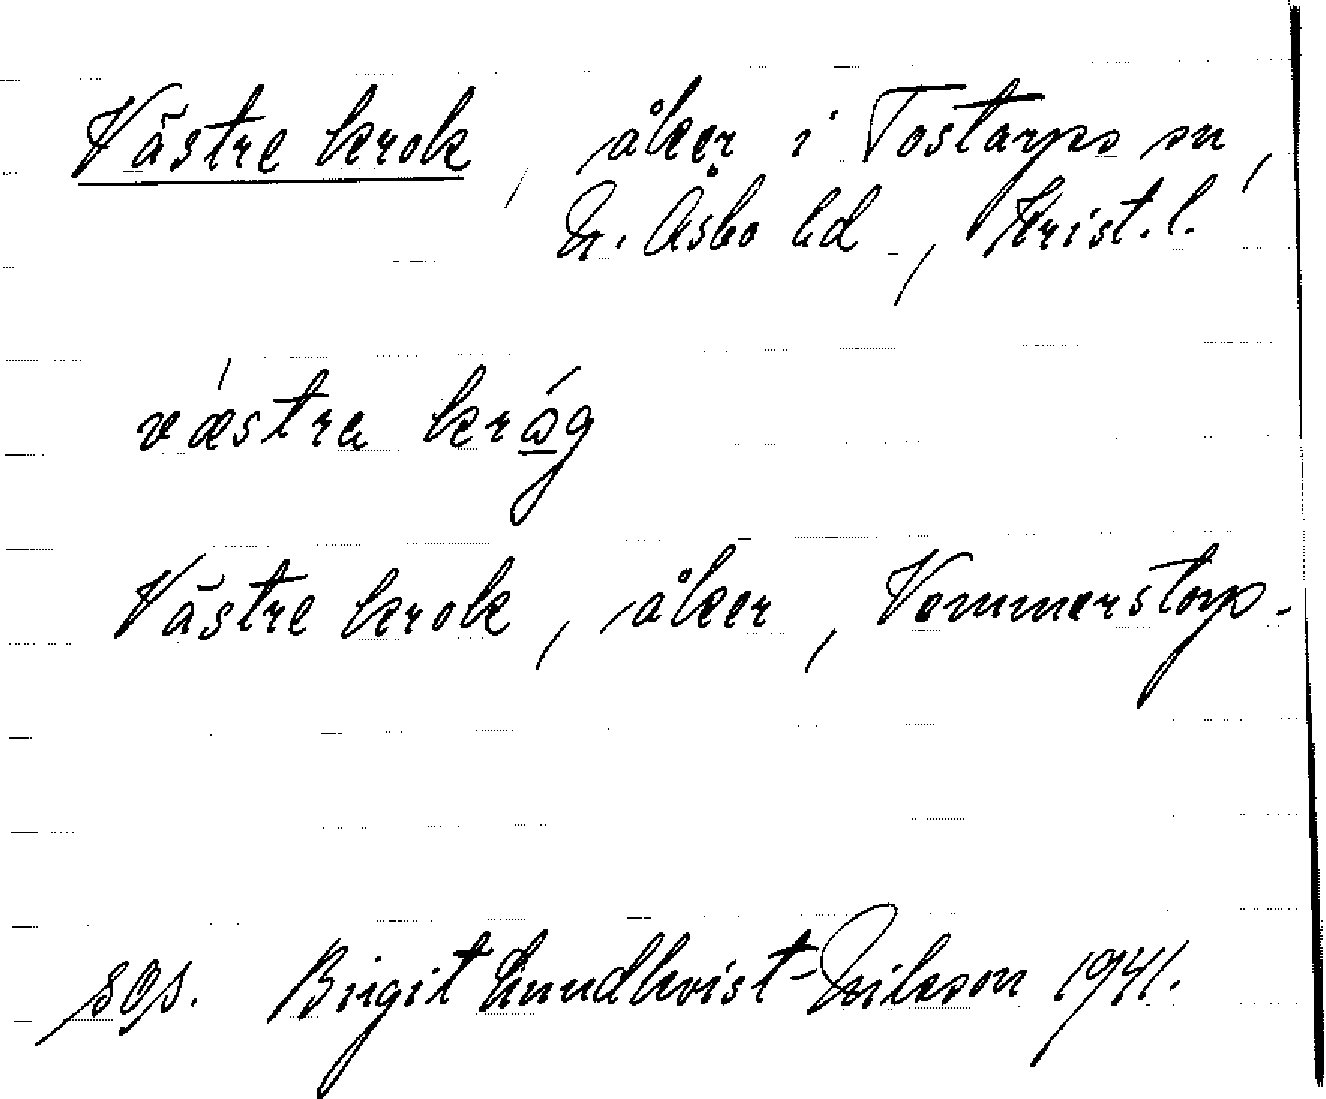 Västre krok, åker i Tostarps sn,
N. Åsbo hd, Krist. l.
væ̀stra krǻg
Västre krok, åker, Vemmerstorp.
sgs. Birgit Lundkvist-Nilsson 1941.